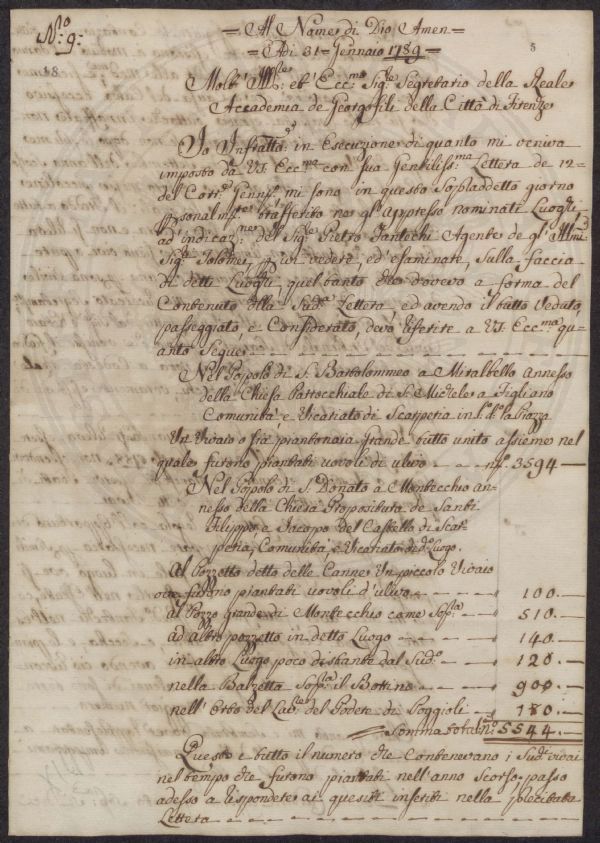 N.° 9:
5
18
= Al Nome di Dio Amen =
= Adi 31. Gennaio 1789 =
Molt' Ill:re et' Ecc:mo Sig:re Segretario della Reale
Accademia de Georgofili della Città di Firenze
Io Infratto in Esecuzione di quanto mi veniva
imposto da VS: Ecc:ma con sua Gentiliss:ma Lettera de 12=
del Corr:e Genn:o mi sono in questo Sopraddetto giorno
trasferito ne gl'appresso nominati Luoghi,
ad' indicaz:ne del Sig:re Pietro Agente de gl'Ill:mi
Sig:ri Tolomei, p ivi vedere, ed' esaminare, sulla faccia
di detti Luoghi, quel tanto che dovevo a forma del
Contenuto della Sud:a Lettera, ed avendo il tutto Veduto,
passeggiato, e Considerato, devo riferire a VS: Ecc:ma qu=
anto Segue
Nel Popolo di S. Bartolommeo a Mirabello annesso
della Chiesa Parrocchiale di S. Michele a Figliano
Comunità, e Vicariato di Scarperia in L.° d.° la Piazza
Un Vivaio o sia piantonaia grande tutto unito assieme nel
quale furono piantati uovoli di ulivo n:° 3594 —
Nel Popolo di S. Donato a Montecchio an=
nesso della Chiesa Propositura de Santi
Filippo, e Jacopo del Castello di Scar=
peria, Comunità, e Vicariato di d.° Luogo.
Al Pozzetto detto delle Canne Un piccolo Vivaio
ove furono piantati uovoli d'ulivo 100. —
al Pozzo grande di Montecchio come Sop:a 510. —
ad altro pozzetto in detto Luogo 140. —
in altro Luogo poco distante dal Sud:o 120. —
nella Balzetta Sop:a il Bottino 900. —
nell' Orto del Lav:re del Podere di Poggioli 180. —
Somma totale n:° 5544. —
Questo è tutto il numero che Contenevano i Sud:i vivai
nel tempo che furono piantati nell'anno Scorso, passo
adesso a rispondere ai quesiti inseriti nella precitata
Lettera